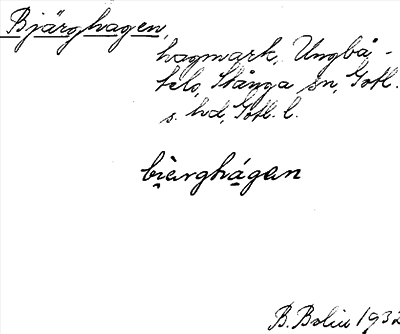 Bjärghagen,
hagmark, Ungbå-
tels, Stånga sn, Gotl.
s. hd, Gotl. l.
bi̬erghá̬gan
B. Bolin 1932